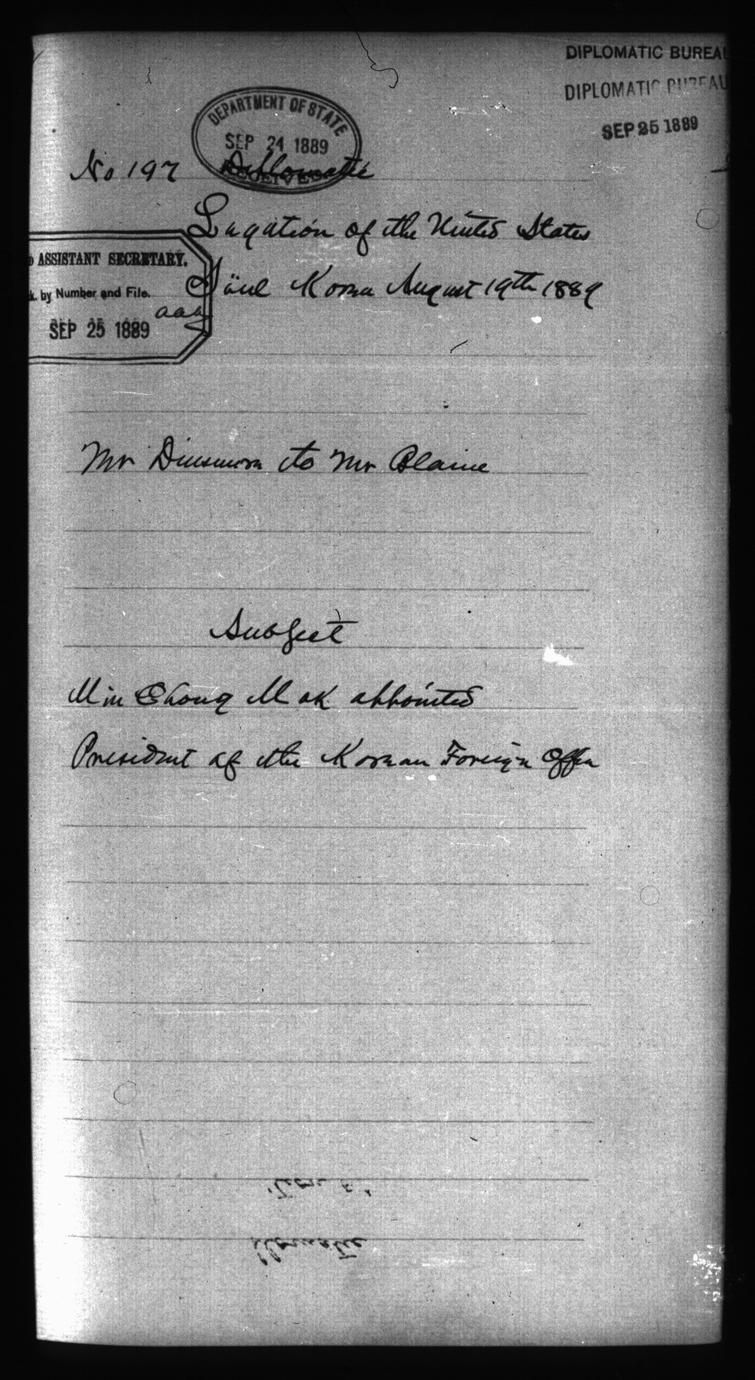 DIPLOMATIC BUREAU
DIPLOMATIC BUREAU
SEP 25 1889
DEPARTMENT OF STATE
SEP 24 1889
RECEIVED
No 197 Diplomatic
Legation of the United States
Söul Korea August 19th 1889
ASSISTANT SECRETARY.
by Number and File.
SEP 25 1889
aaa
Mr Dinsmore to Mr Blaine
Subject
Min Chong Mok appointed
President of the Korean Foreign Office